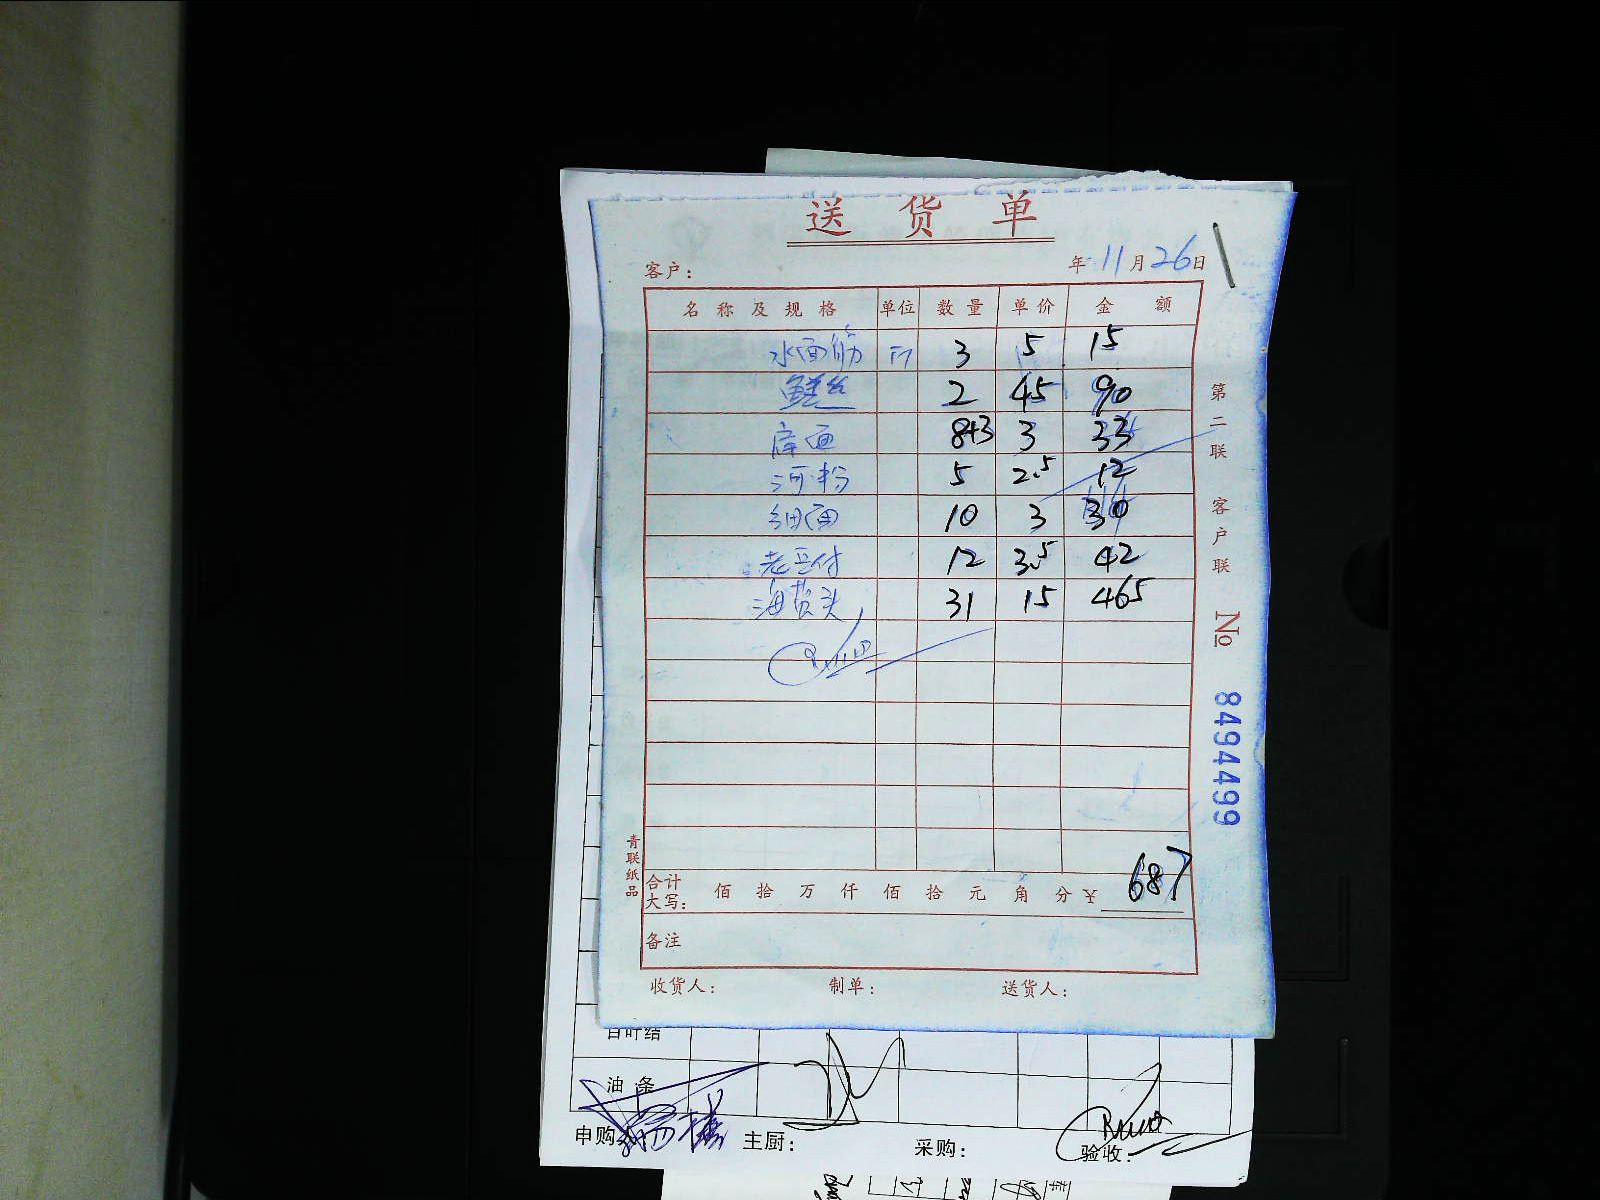 送货单
客户： 年 11 月 26 日
名称及规格 单位 数量 单价 金额
水面筋 斤 3 5 15
鳝丝 2 45 90
库面 8+3 3 33
河粉 5 2.5 12
细面 10 3 30
老豆付 12 3.5 42
海蜇头 31 15 465
合计大写： 佰 拾 万 仟 佰 拾 元 角 分 ¥ 687
备注
收货人： 制单： 送货人：
第二联 客户联 No 8494499
青联纸品
百叶结
油条
申购 主厨： 采购： 验收：